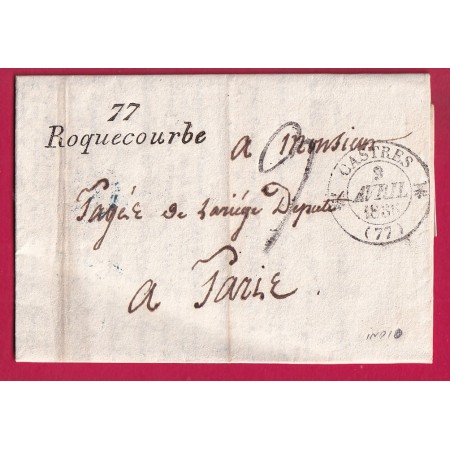 77
Roquecourbe
a Monsieur
Pagès de Lariége Deputé
a Paris.
9
CASTRES
AVRIL
(77)
INDIO